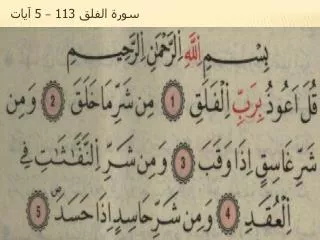 سورة الفلق 113 – 5 آيات
بِسْمِ اللّٰهِ الرَّحْمٰنِ الرَّحِيمِ
قُلْ اَعُوذُ بِرَبِّ الْفَلَقِ ١ مِن شَرِّ مَا خَلَقَ ٢ وَمِن
شَرِّ غَاسِقٍ اِذَا وَقَبَ ٣ وَمِن شَرِّ النَّفّٰثٰتِ فِي
الْعُقَدِ ٤ وَمِن شَرِّ حَاسِدٍ اِذَا حَسَدَ ٥